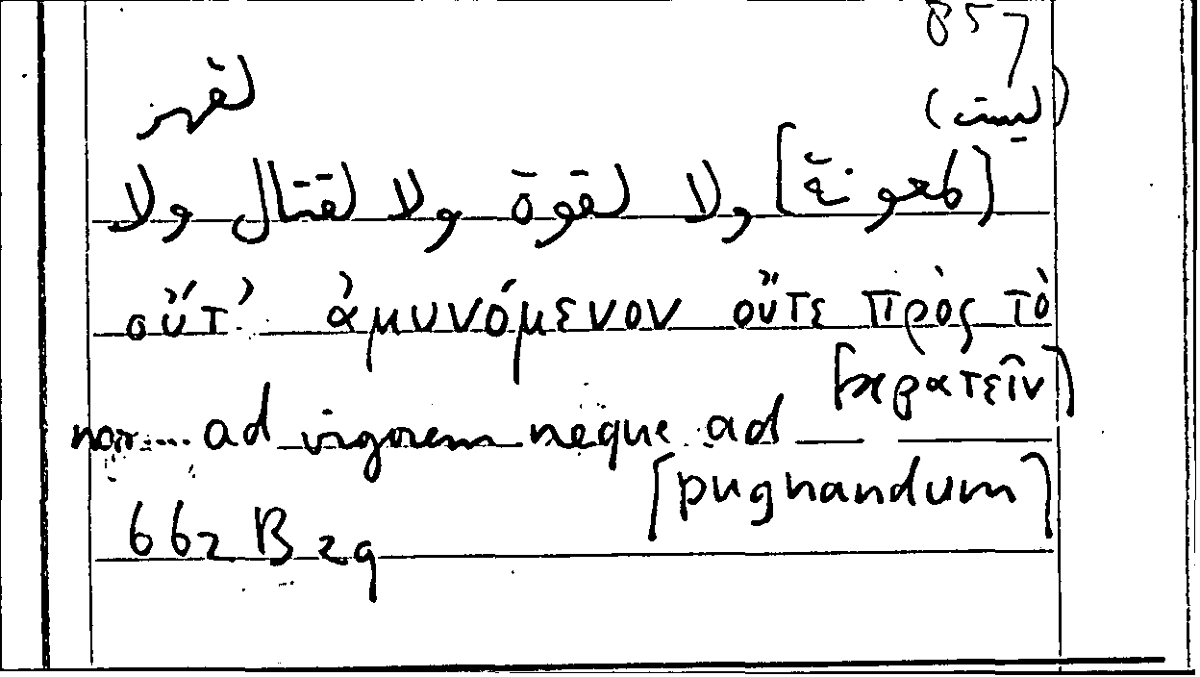 857
(ليست)
لقهر
[لمعونة] ولا لقوة ولا لقتال ولا
οὔτ' ἀμυνόμενον οὔτε πρὸς τὸ
[κρατεῖν]
non ... ad vigorem neque ad
[pugnandum]
662 B 29